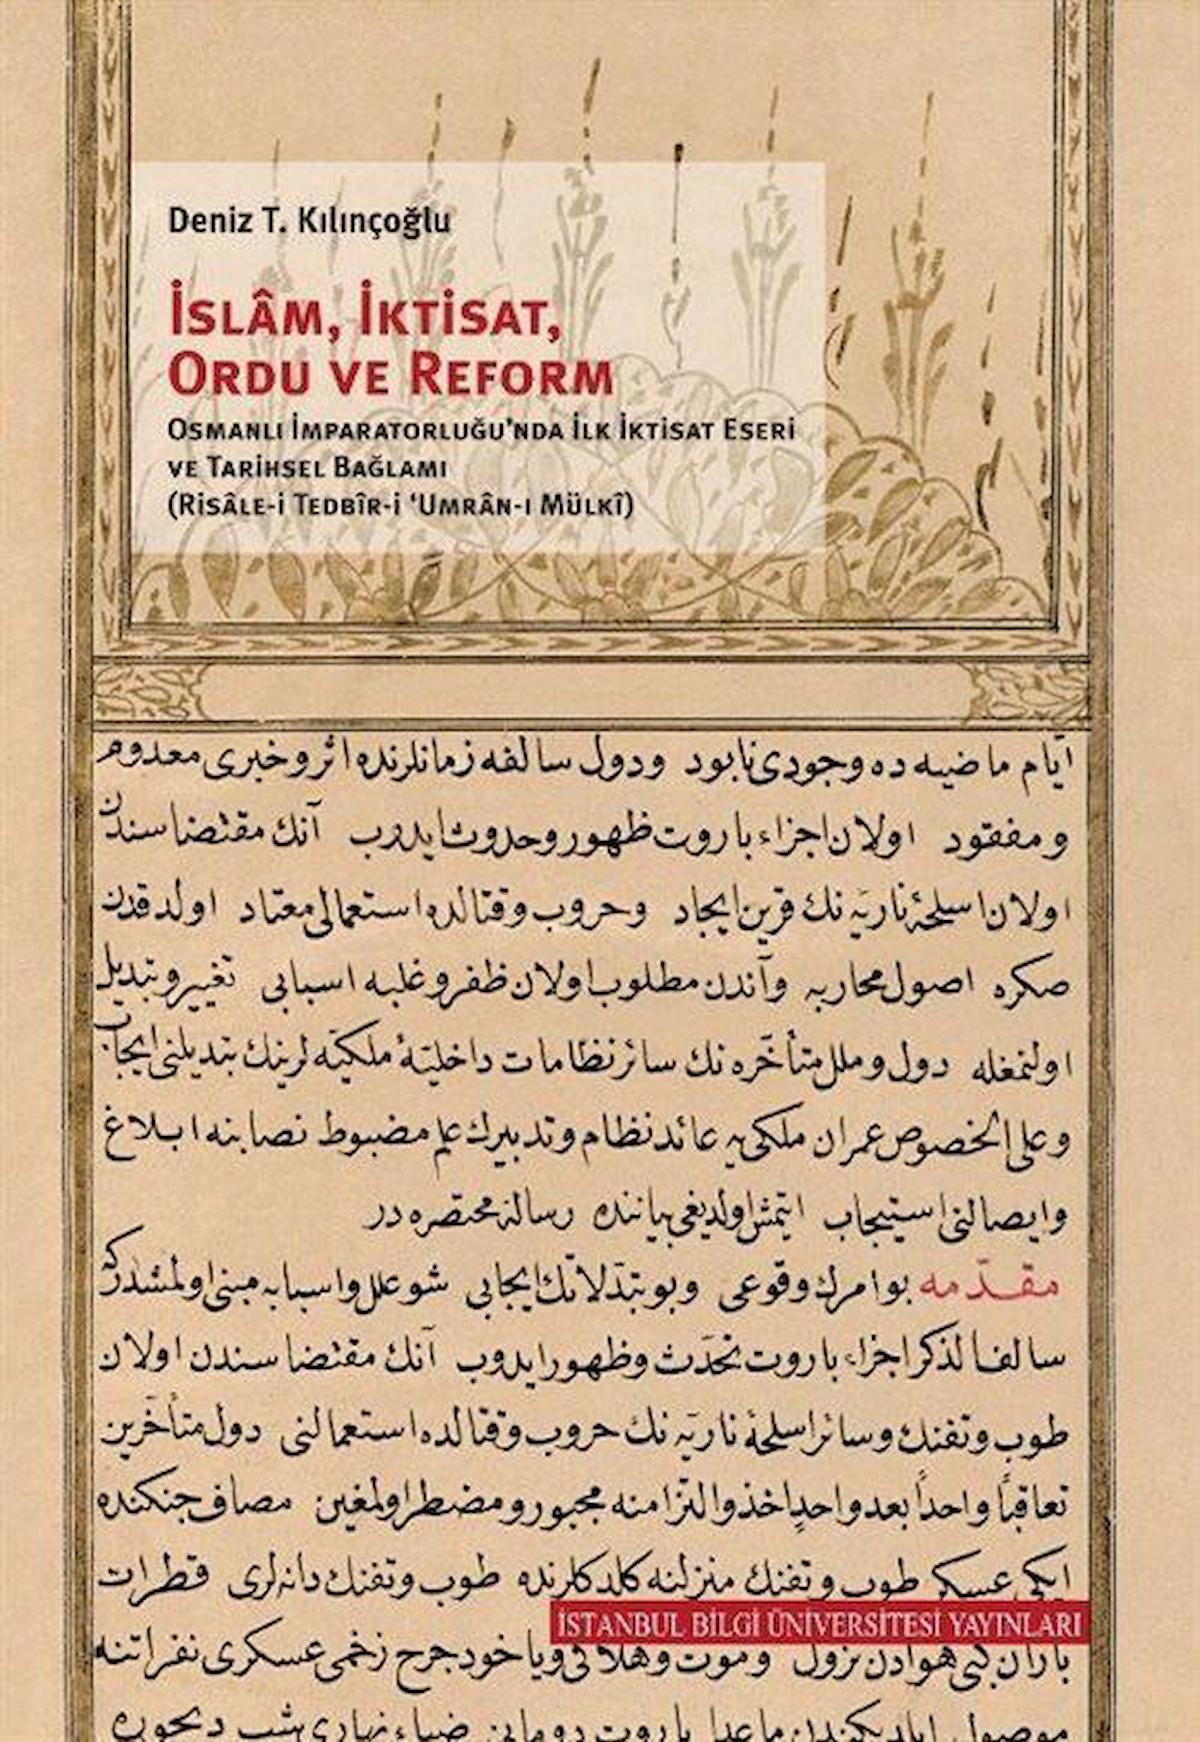 Deniz T. Kılınçoğlu
İslâm, İktisat,
Ordu ve Reform
Osmanlı İmparatorluğu'nda İlk İktisat Eseri
ve Tarihsel Bağlamı
(Risâle-i Tedbîr-i ‘Umrân-ı Mülkî)
ایّام ماضیه ده وجودی نابود ودول سالفه زمانلرنده اثر وخبری معدوم
ومفقود اولان اجزاء باروت ظهور وحدوث ایدوب آنك مقتضاسندن
اولان اسلحۀ ناریّه نك قرین ایجاد وحروب وقتالده استعمالی معتاد اولدقدن
صكره اصول محاربه وآندن مطلوب اولان ظفر وغلبه اسبابی تغییر وتبدیل
اولنمغله دول وملل متأخّره نك سائر نظامات داخلیّۀ ملكیّه لرینك تبدیلنی ایجاب
وعلی الخصوص عمران ملكی یه عائد نظام وتدبیرك علم مضبوط نصابنه ابلاغ
وایصالنی استیجاب ایتمش اولدیغی بیاننده رسالۀ مختصره در
مقدّمه بو امرك وقوعی وبو تبدّلاتك ایجابی شو علل واسبابه مبنی اولمشدركه
سالف الذكر اجزاء باروت تحدّث وظهور ایدوب آنك مقتضاسندن اولان
طوب وتفنك وسائر اسلحۀ ناریّه نك حروب وقتالده استعمالنی دول متأخّرین
تعاقباً واحداً بعد واحدٍ اخذ والتزامنه مجبور ومضطر اولمغین مصاف جنكنده
ایكی عسكر طوب وتفنك منزلنه كلدكلرنده طوب وتفنك دانه لری قطرات
İSTANBUL BİLGİ ÜNİVERSİTESİ YAYINLARI
باران كبی هوادن نزول وموت وهلاكی ویاخود جرح زخمی عسكری نفراتنه